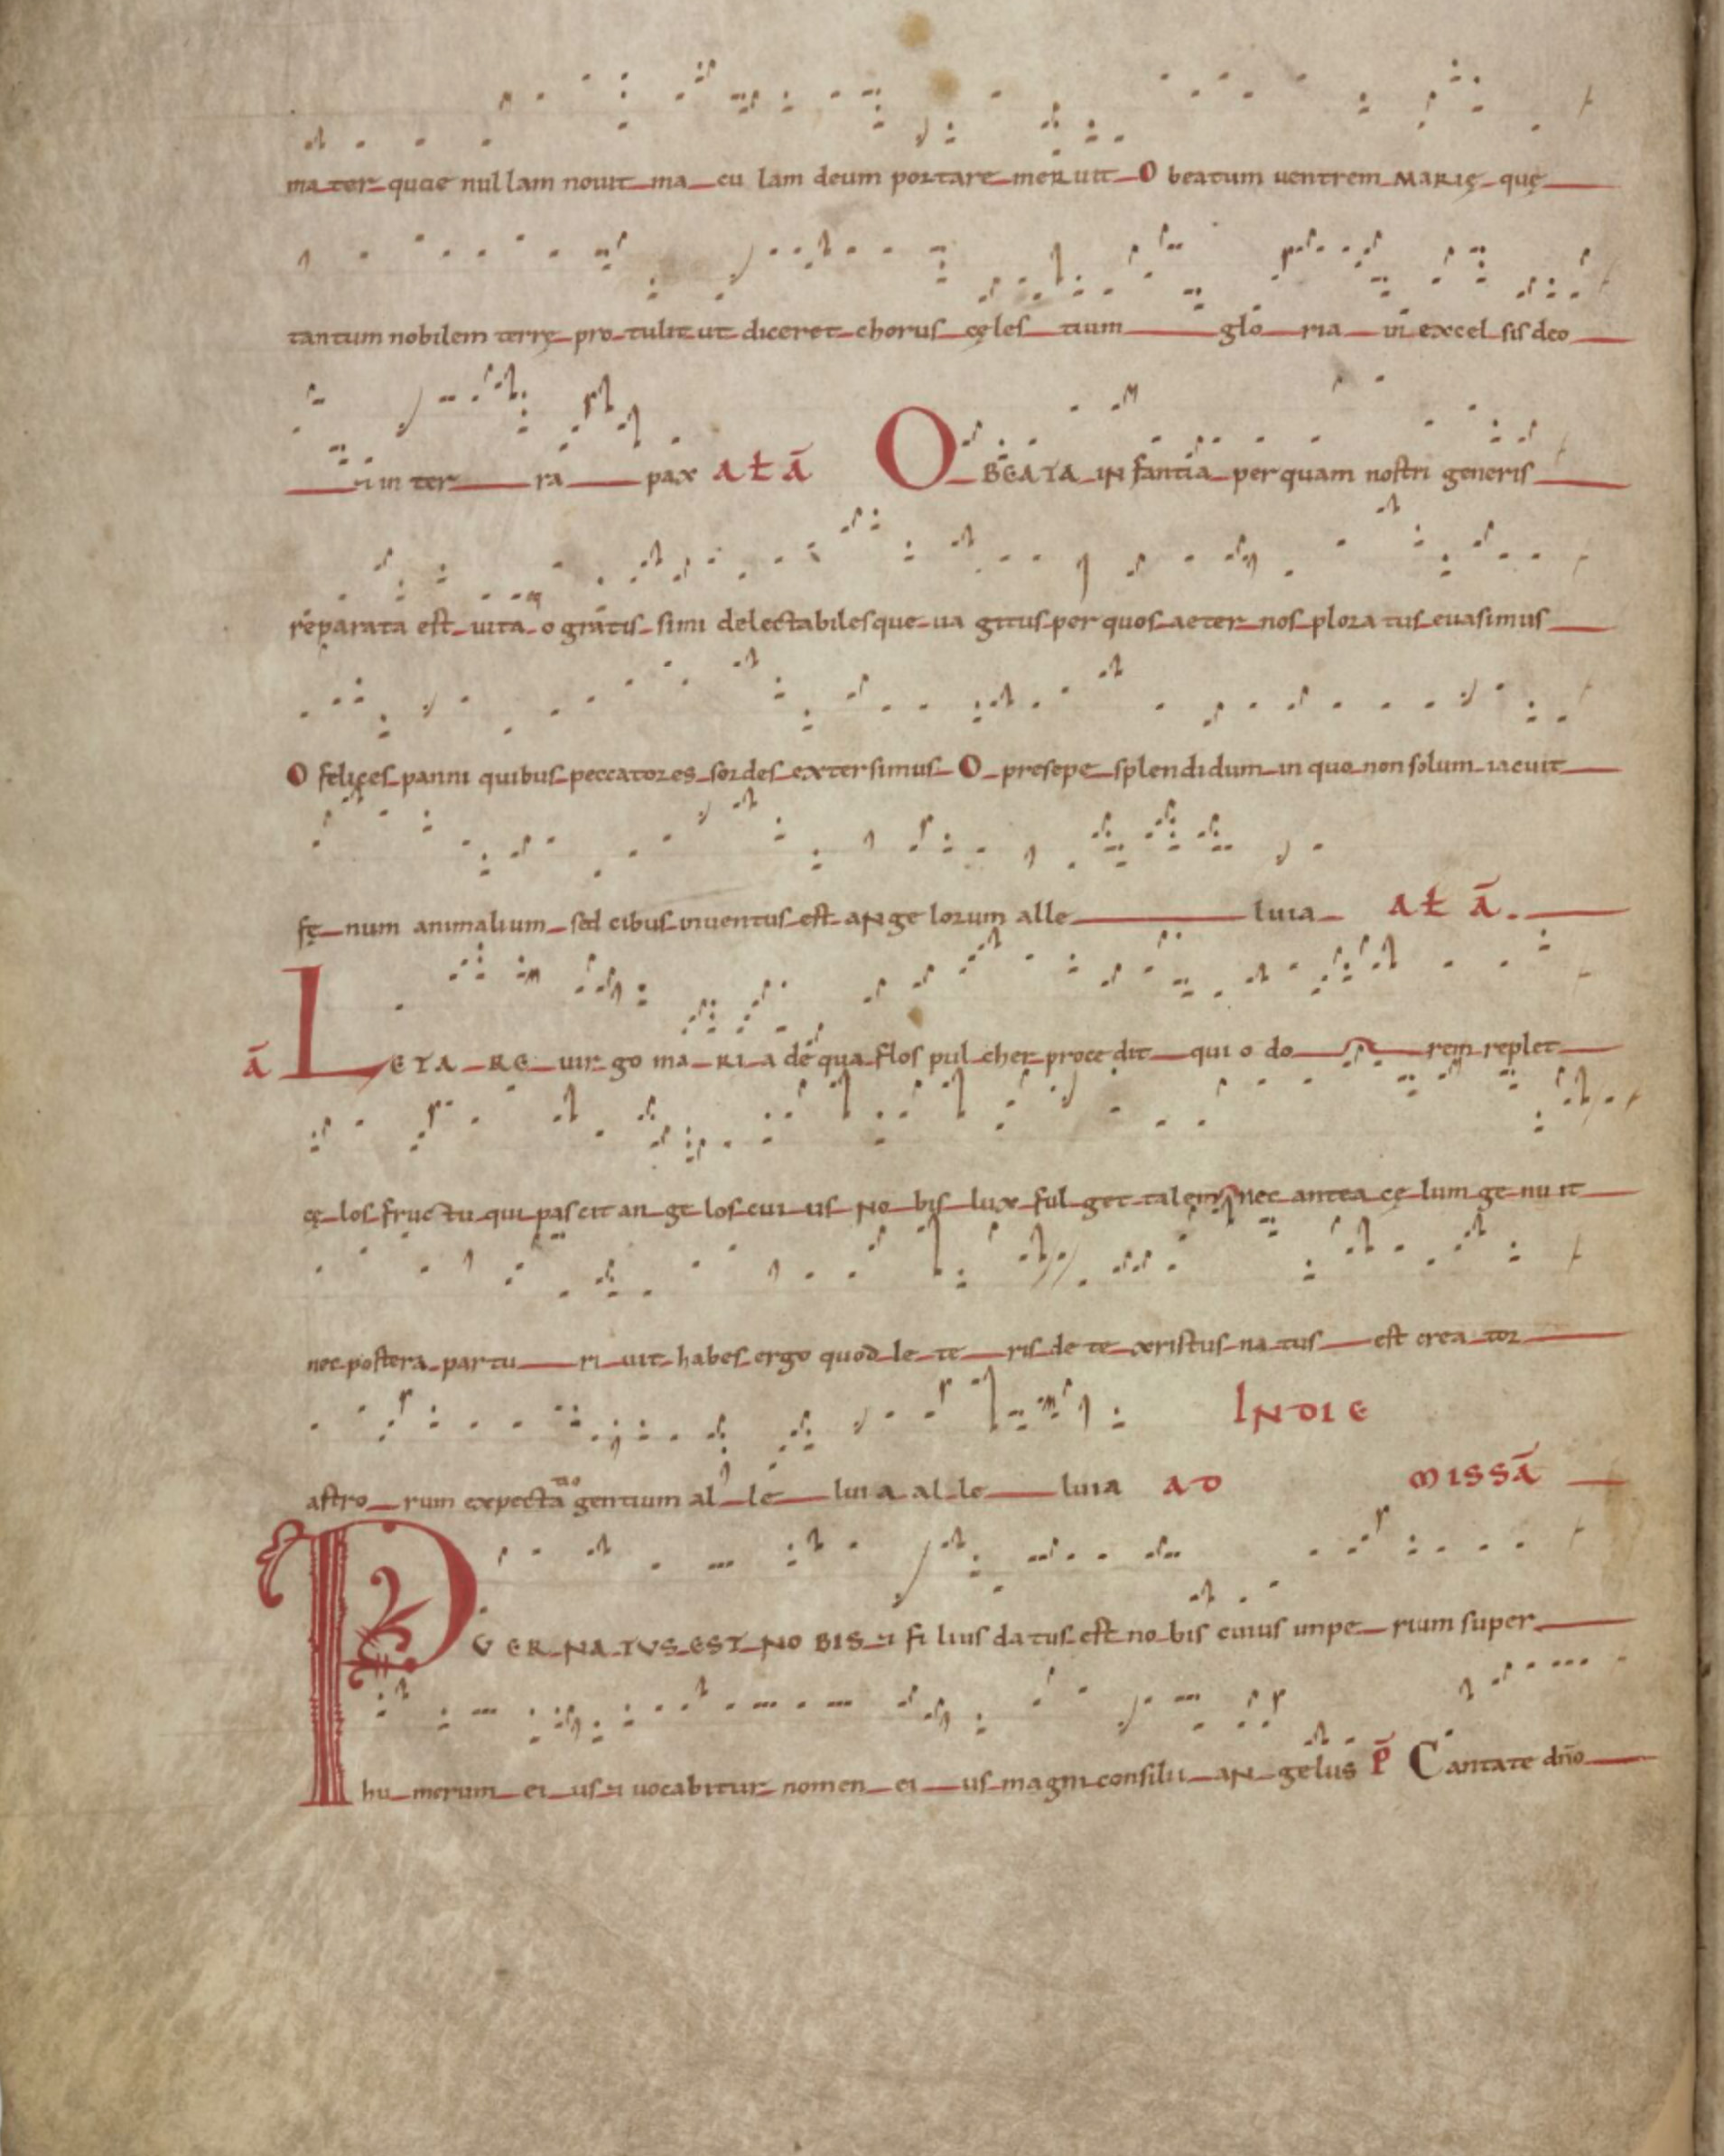 ma ter quae nullam nouit ma cu lam deum portare meruit O beatum uentrem MARIĘ quę
tantum nobilem terrę pro tulit ut diceret chorus cęles tium glo ria in excel sis deo
⁊ in ter ra pax A ł ā O BEATA IN fantia per quam nostri generis
reparata est uita o gratis simi delectabilesque ua gitus per quos aeter nos plora tus euasimus
O felices panni quibus peccatores sordes extersimus O presepe splendidum in quo non solum iacuit
fę num animalium sed cibus inuentus est ANge lorum alle luia A ł ā.
ā LETA RE uir go ma RI a de qua flos pul cher proce dit qui o do rem replet
cę los fruc tu qui pascit an ge los cui us No bis lux ful get talem nec antea cę lum ge nu it
nec postera par tu ri uit habes ergo quod le te ris de te xristus na tus est crea tor
INDIE
astro rum expectatio gentium al le luia al le luia AD MISSĀ
PU ER NA TUS EST NO BIS ⁊ fi lius da tus est no bis cuius impe rium super
hu merum ei us ⁊ uocabitur nomen ei us magni consilii AN gelus P̄ Cantate dño